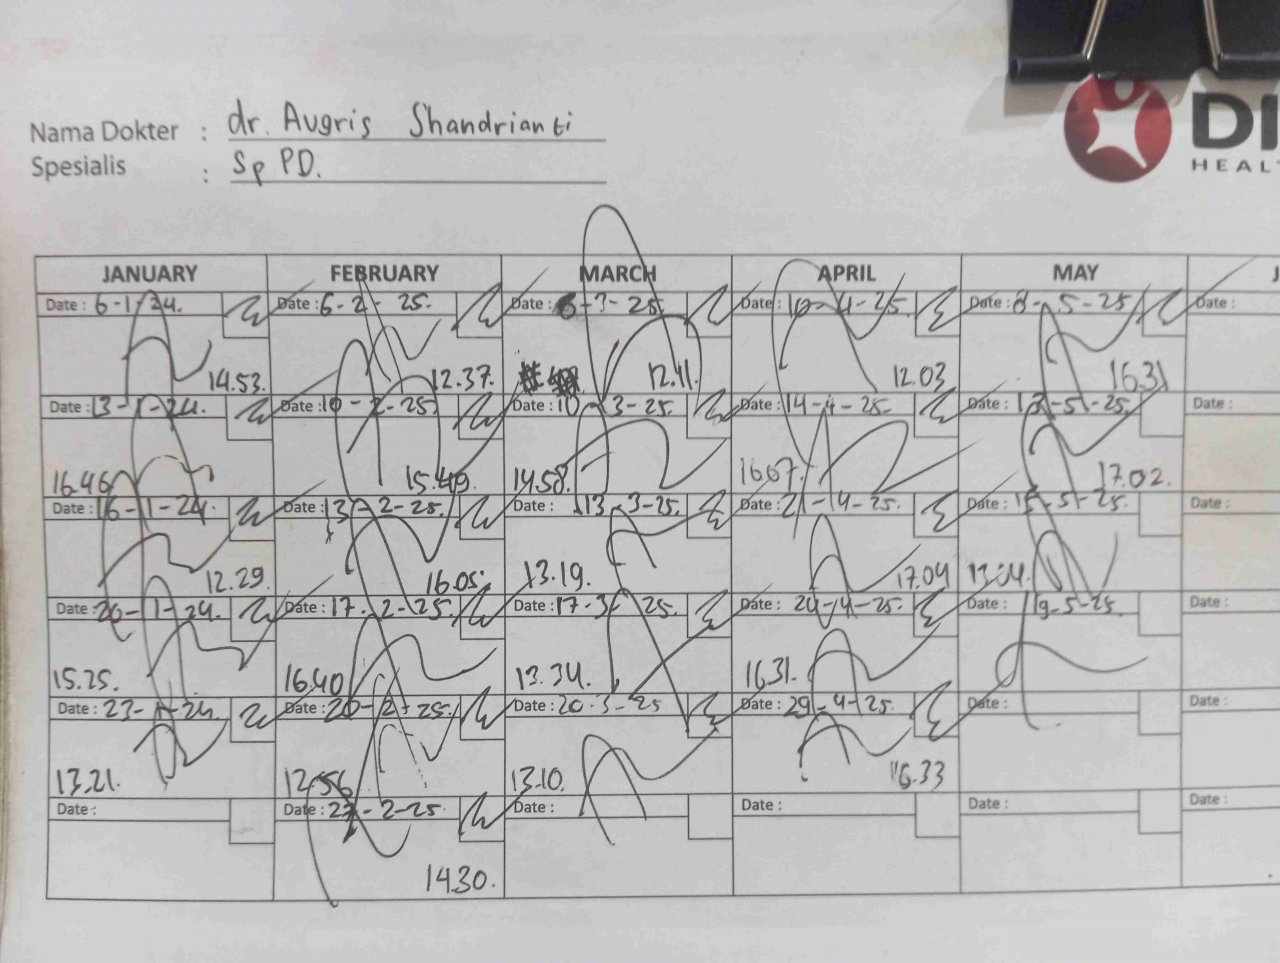 Nama Dokter : dr. Augris Shandrianti
Spesialis : Sp PD.
DI
HEALT
JANUARY FEBRUARY MARCH APRIL MAY J
Date : 6-1-24. Date : 6-2-25. Date : 6-3-25. Date : 10-4-25. Date : 8-5-25 Date :
14.53. 12.37. 12.11. 12.03 16.31
Date : 13-1-24. Date : 10-2-25. Date : 10-3-25. Date : 14-4-25. Date : 13-5-25. Date :
16.46 15.49. 14.58. 16.07. 17.02.
Date : 16-1-24. Date : 13-2-25. Date : 13-3-25. Date : 21-4-25. Date : 15-5-25. Date :
12.29. 16.05. 13.19. 17.04 13.01.
Date : 20-1-24. Date : 17-2-25. Date : 17-3-25. Date : 24-4-25. Date : 19-5-25. Date :
15.25. 16.40 13.34. 16.31.
Date : 23-1-24. Date : 20-2-25. Date : 20-3-25 Date : 29-4-25. Date : Date :
13.21. 12.56 13.10. 16.33
Date : Date : 27-2-25. Date : Date : Date : Date :
14.30.